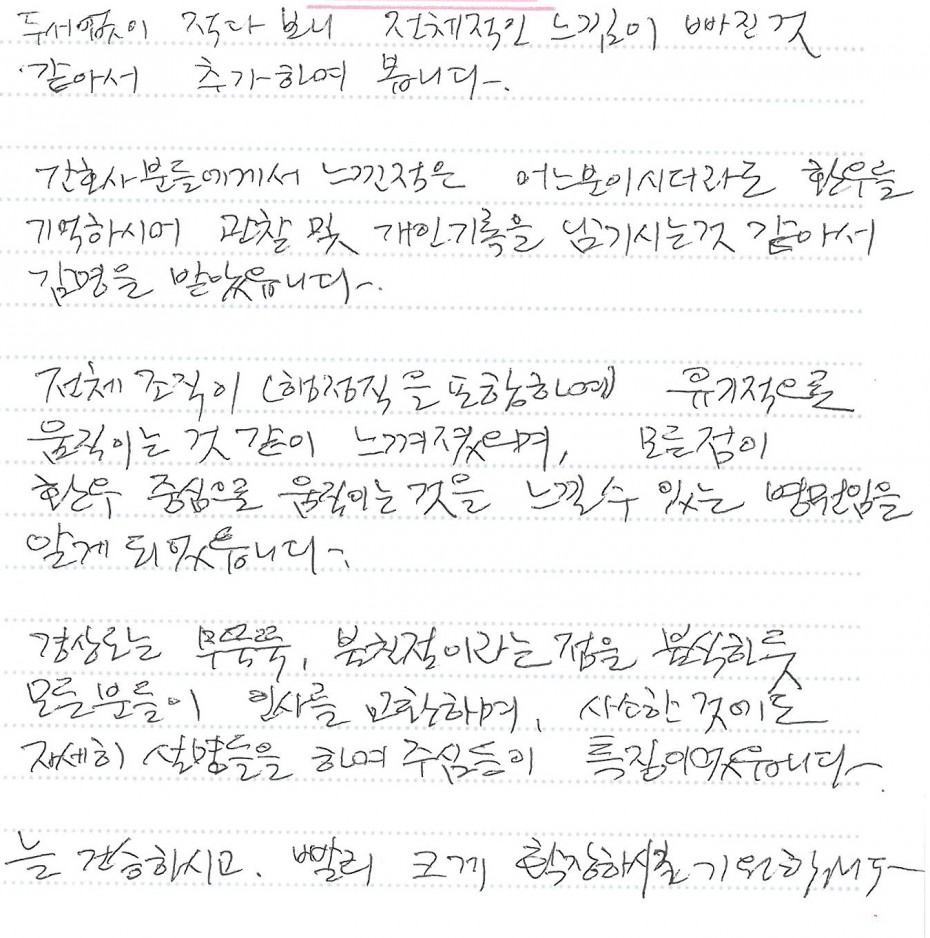 두서없이 적다 보니 전체적인 느낌이 빠진것
같아서 추가하여 봅니다.
간호사분들에게서 느낀점은 어느분이시더라도 환우를
기억하시며 관찰 및 개인기록을 남기시는것 같아서
감명을 받았읍니다.
전체 조직이 (행정직을 포함하여) 유기적으로
움직이는 것 같이 느껴졌으며, 모든점이
환우 중심으로 움직이는 것을 느낄수 있는 병원임을
알게 되었읍니다.
경상도는 무뚝뚝, 불친절이라는 점을 불식하듯
모든분들이 인사를 교환하며, 사소한 것에도
자세히 설명들을 하여 주심들이 특징이었읍니다.
늘 건승하시고. 빨리 크게 확장하시길 기원합니다.